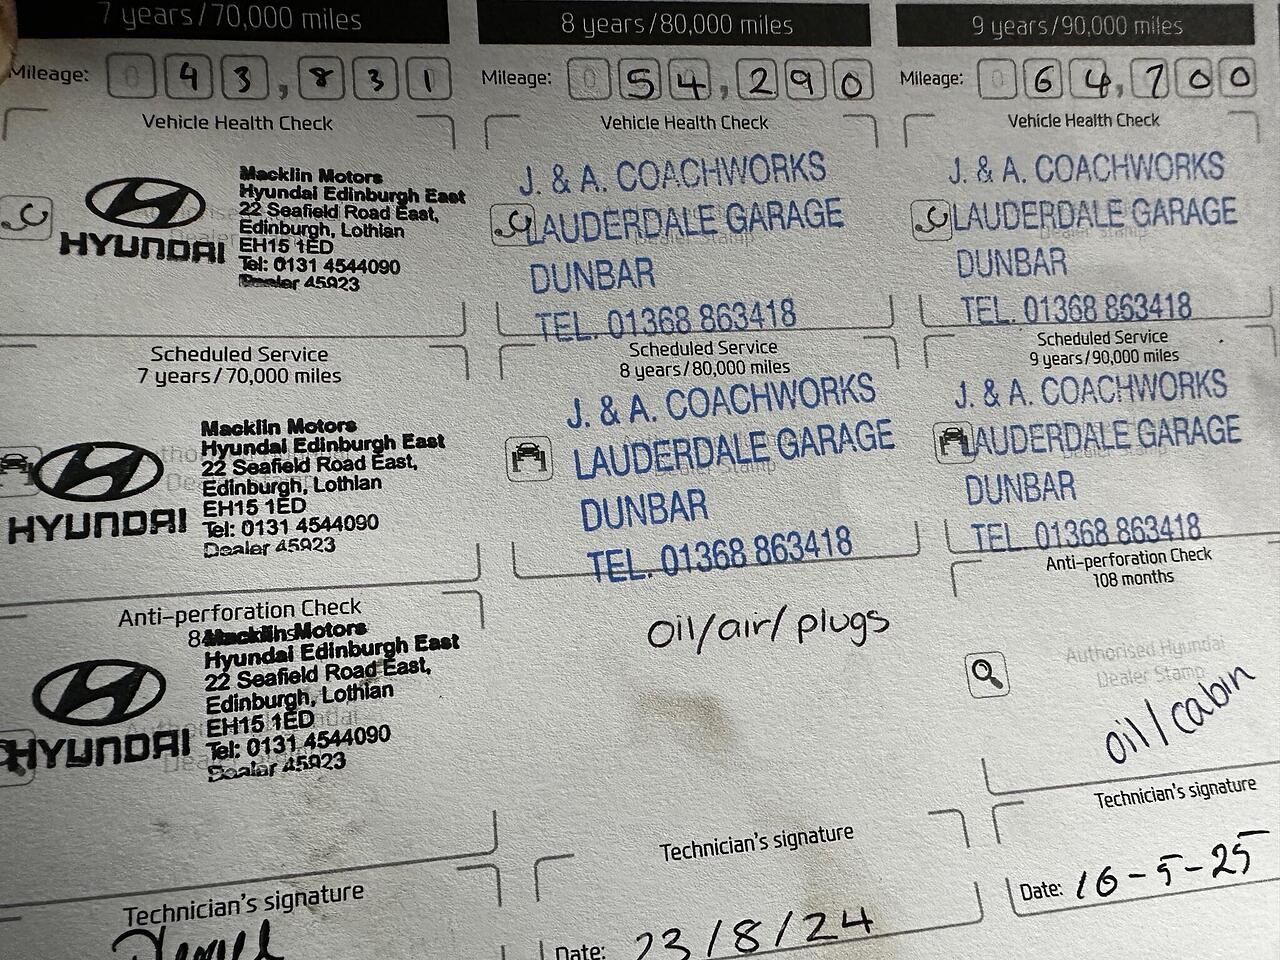 7 years/70,000 miles
Mileage: 0 43,831
Vehicle Health Check
HYUNDAI
Macklin Motors
Hyundai Edinburgh East
22 Seafield Road East,
Edinburgh, Lothian
EH15 1ED
Tel: 0131 4544090
Dealer 45923
Scheduled Service
7 years/70,000 miles
HYUNDAI
Macklin Motors
Hyundai Edinburgh East
22 Seafield Road East,
Edinburgh, Lothian
EH15 1ED
Tel: 0131 4544090
Dealer 45923
Anti-perforation Check
HYUNDAI
Macklin Motors
Hyundai Edinburgh East
22 Seafield Road East,
Edinburgh, Lothian
EH15 1ED
Tel: 0131 4544090
Dealer 45923
Technician's signature
8 years/80,000 miles
Mileage: 0 54,290
Vehicle Health Check
J. & A. COACHWORKS
LAUDERDALE GARAGE
DUNBAR
TEL. 01368 863418
Scheduled Service
8 years/80,000 miles
J. & A. COACHWORKS
LAUDERDALE GARAGE
DUNBAR
TEL. 01368 863418
oil/air/plugs
Technician's signature
Date: 23/8/24
9 years/90,000 miles
Mileage: 0 64,700
Vehicle Health Check
J. & A. COACHWORKS
LAUDERDALE GARAGE
DUNBAR
TEL. 01368 863418
Scheduled Service
9 years/90,000 miles
J. & A. COACHWORKS
LAUDERDALE GARAGE
DUNBAR
TEL. 01368 863418
Anti-perforation Check
108 months
Authorised Hyundai
Dealer Stamp
oil/cabin
Technician's signature
Date: 16-5-25